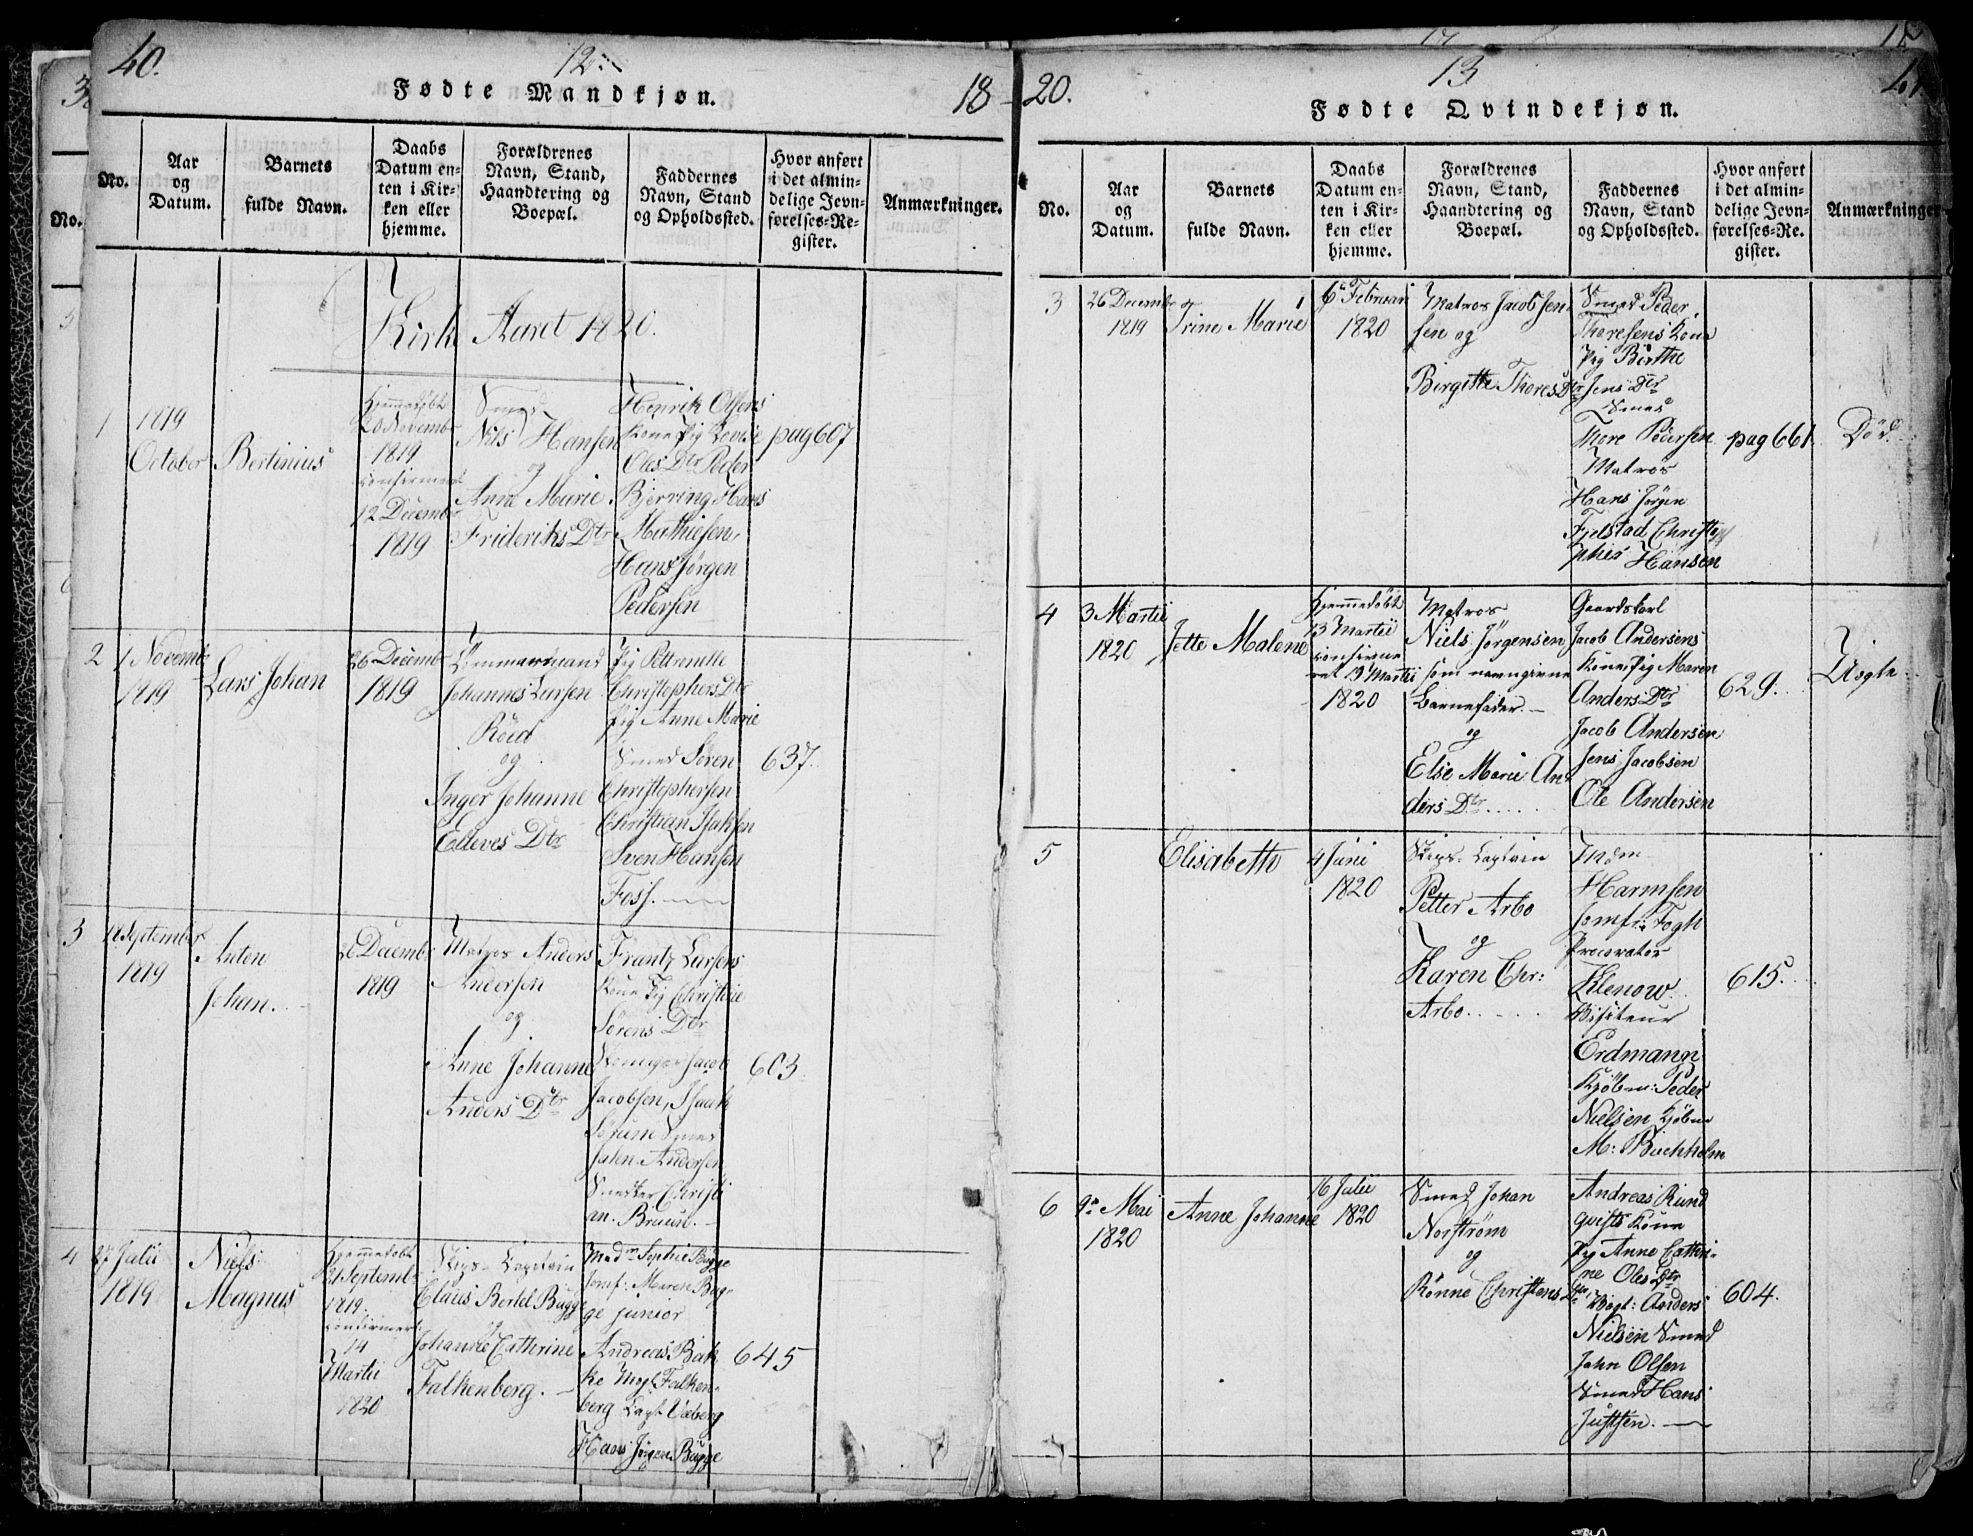 40.
12
Fødte Mandkjøn.
18
No.
Aar
og
Datum.
Barnets
fulde Navn.
Daabs
Datum en-
ten i Kir-
ken eller
hjemme.
Forældrenes
Navn, Stand,
Haandtering og
Boepæl.
Faddernes
Navn, Stand
og Opholdssted.
Hvor anført
i det almin-
delige Jevn-
førelses-Re-
gister.
Anmærkninger.
Kirke Aaret 1820.
1
1819
October
Bertinius
Hjemmedøbt
20 Novembr
1819
confirmert
12 Decembr
1819
Smed
Nils Hansen
og
Anne Marie
Frideriks Dtr
Henrik Olsens
Kone Pig Lovise
Oles Dtr Peder
Bjerring Hans
Mathiesen,
Hans Jørgen
Pedersen
pag 607
2
1 Novembr
1819
Lars Johan
26 Decembr
1819
Tømmermand
Johannes Larsen
Röed
og
Inger Johanne
Elleves Dtr
Pig Petternelle
Christophers Dtr
Pig Anne Marie
Smed Søren
Christophersen
Christian Isaksen
Sven Hansen
Foss.
637.
3
18 September
1819
Anton
Johan.
26 Decembr
1819
Matros Anders
Andersen
og
Anne Johanne
Anders Dtr
Frantz Larsens
Kone Pig Christine
Sørens Dtr
Jacob
Jacobsen, Isaak
Smed
Andersen
Christi
an. Bruun.
603.
4
27 Julii
1819
Niels
Magnus
Hjemmedøbt
21 Septembr
1819.
confirmert
14
Martii
1820
Skips-Captein
Claus Bertel Bugge
og
Johanne Cathrine
Falkenberg.
Madm Sophie Bugge
Jomf: Maren Bug-
ge junior
Andreas Bak
ke Falken-
berg Capt Veberg
Hans Jørgen Bugge
645
20.
13
41
Fødte Qvindekjøn.
No.
Aar
og
Datum.
Barnets
fulde Navn.
Daabs
Datum en-
ten i Kir-
ken eller
hjemme.
Forældrenes
Navn, Stand,
Haandtering og
Boepæl.
Faddernes
Navn, Stand
og Opholdssted.
Hvor anført
i det almin-
delige Jevn-
førelses-Re-
gister.
Anmærkninger
3
26 Decembr
1819
Trine Marie
6 Februari
1820
Matros Jacob Jen
sen og
Birgitte Thores Dtr
Smed Peder
Thoresens Kone
Pig Birthe
Jens Dtr
Smed
Thore Pedersen
Matros
Hans Jörgen
Fjelstad Christo
pher Hansen
pag 661.
Död.
4
3 Martii
1820
Jette Malene
Hjemmedöbt
13 Martii
confirme
ret 19 Martii
1820
Matros
Niels Jörgensen
som navngivne
Barnefader.
og
Else Marie An
ders Dtr
Gaardskarl
Jacob Andersens
Kone, Pig Maren
Anders Dtr
Jacob Andersen
Jens Jacobsen
Ole Andersen
629.
Uægte.
5
Elisabeth
4 Juni
1820
Skips-Captein
Petter Arbo
og
Karen Chr:
Arbo.
Mdm
Harmsen
Jomfr: Fogh
Procurator
Klenow
Visiteur
Erdmann
Kjöbm: Peder
Nielsen Kjöbm
M: Buchholm
615.
6
9de Mai
1820
Anne Johanne
16 Julii
1820
Smed Johan
Norström
og
Rönne Christens Dtr
Andreas Rund
qvists Kone
Pig Anne Cathri-
ne Oles Dtr
Vogt: Anders
Nielsen Smed
John Olsen
Smed Hans
Justsen.
604.